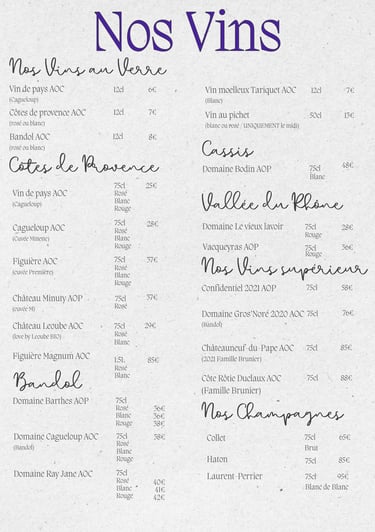 Nos Vins
Nos Vins au Verre
Vin de pays AOC 12cl 6€
(Cagueloup)
Côtes de provence AOC 12cl 7€
(rosé ou blanc)
Bandol AOC 12cl 8€
(rosé ou blanc)
Côtes de Provence
Vin de pays AOC 75cl 25€
(Cagueloup) Rosé
Blanc
Rouge
Cagueloup AOC 75cl 28€
(Cuvée Minene) Rosé
Blanc
Rouge
Figuière AOC 75cl 37€
(cuvée Première) Rosé
Blanc
Rouge
Château Minuty AOP 75cl 37€
(cuvée M) Rosé
Château Leoube AOC 75cl 29€
(love by Leoube BIO) Rosé
Blanc
Figuière Magnum AOC 1.5L 85€
Rosé
Blanc
Bandol
Domaine Barthes AOP 75cl
Rosé 36€
Blanc 36€
Rouge 38€
Domaine Cagueloup AOC 75cl 38€
(Bandol) Rosé
Blanc
Rouge
Domaine Ray Jane AOC 75cl
Rosé 40€
Blanc 41€
Rouge 42€
Vin moelleux Tariquet AOC 12cl 7€
(Blanc)
Vin au pichet 50cl 15€
(blanc ou rosé / UNIQUEMENT le midi)
Cassis
Domaine Bodin AOP 75cl 48€
Blanc
Vallée du Rhône
Domaine Le vieux lavoir 75cl 28€
Rouge
Vacqueyras AOP 75cl 36€
Rouge
Nos Vins supérieur
Confidentiel 2021 AOP 75cl 58€
Domaine Gros'Noré 2020 AOC 75cl 76€
(Bandol)
Châteauneuf-du-Pape AOC 75cl 85€
(2021 Famille Brunier)
Côte Rôtie Duclaux AOC 75cl 88€
(Famille Brunier)
Nos Champagnes
Collet 75cl 65€
Brut
Haton 75cl 85€
Laurent-Perrier 75cl 95€
Blanc de Blanc